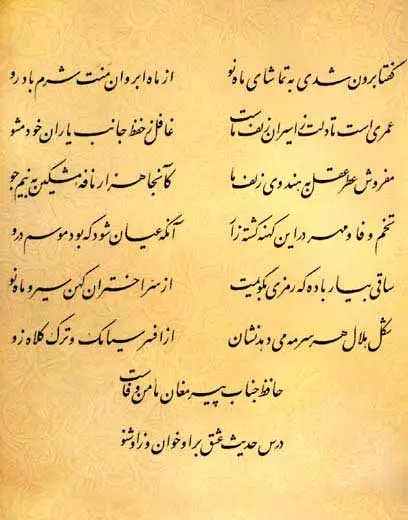 گفتا برون شدی به تماشای ماه نو از ماه ابروان منت شرم باد رو
عمری است تا دلت ز اسیران زلف ماست غافل ز حفظ جانب یاران خود مشو
مفروش عطر عقل به هندوی زلف ما کآنجا هزار نافه مشکین به نیم جو
تخم وفا و مهر در این کهنه کشته زار آنگه عیان شود که بود موسم درو
ساقی بیار باده که رمزی بگویمت از سر اختران کهن سیر و ماه نو
شکل هلال هر سر مه می دهد نشان از افسر سیامک و ترک کلاه زو
حافظ جناب پیر مغان مامن وفاست
درس حدیث عشق بر او خوان و ز او شنو